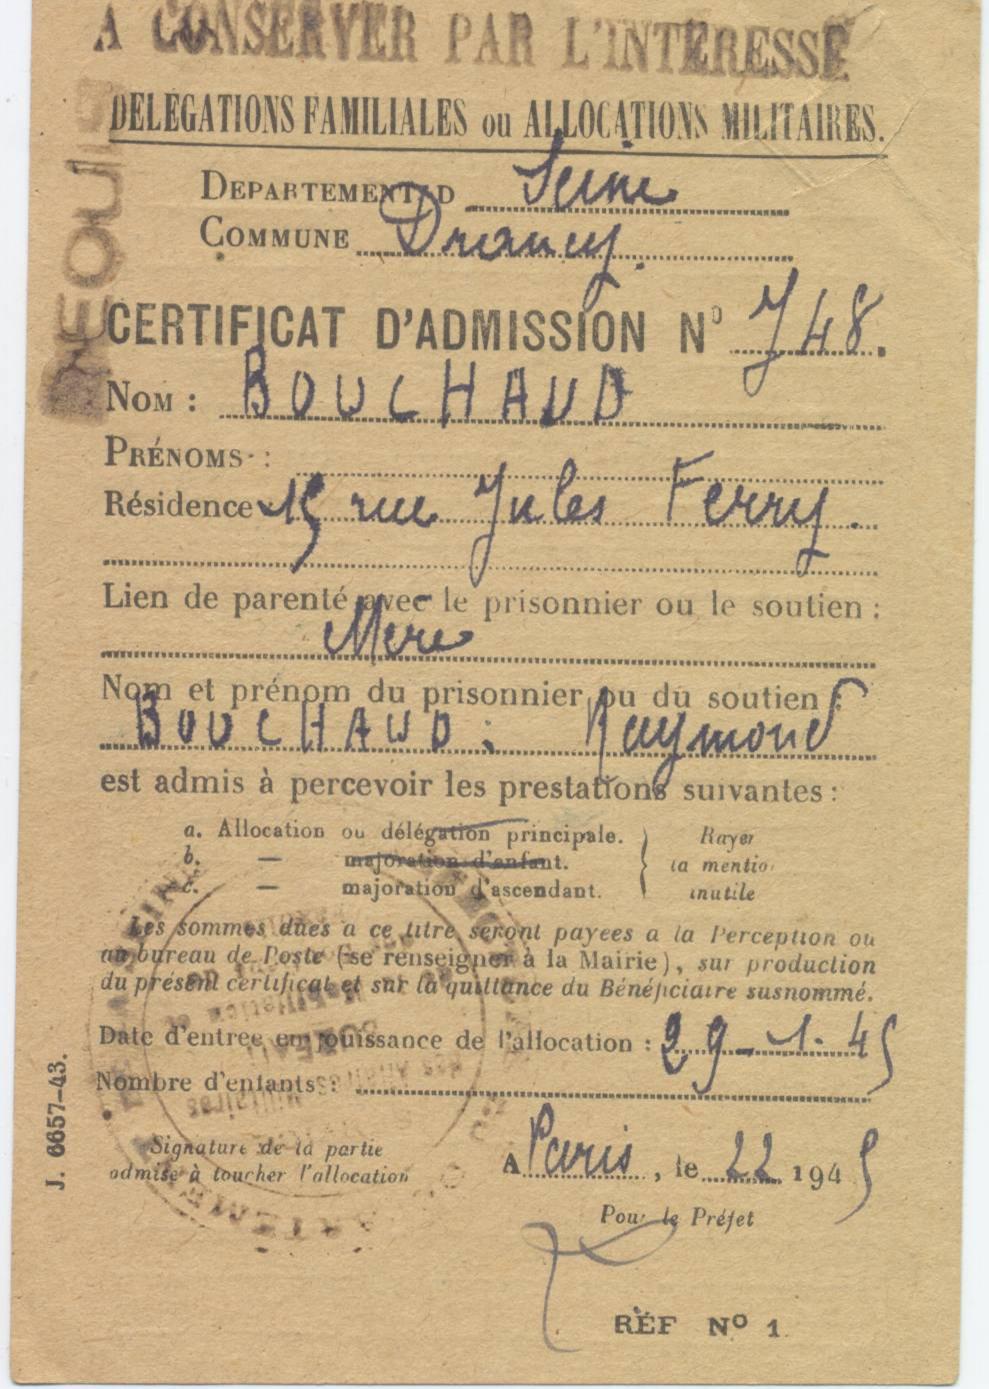 A CONSERVER PAR L'INTERESSÉ
DÉLÉGATIONS FAMILIALES ou ALLOCATIONS MILITAIRES.
DEPARTEMENT D Seine
COMMUNE Drancy.
CERTIFICAT D'ADMISSION N° 748.
NOM : BOUCHAUD
PRÉNOMS :
Résidence 15 rue Jules Ferry.
Lien de parenté avec le prisonnier ou le soutien :
Mère
Nom et prénom du prisonnier ou du soutien :
BOUCHAUD : Raymond
est admis à percevoir les prestations suivantes :
a. Allocation ou délégation principale.
b. — majoration d'enfant.
c. — majoration d'ascendant.
Rayer
la mentio
inutile
Les sommes dues a ce titre seront payees a la Perception ou
au bureau de Poste (se renseigner à la Mairie), sur production
du présent certificat et sur la quittance du Bénéficiaire susnommé.
Date d'entree en jouissance de l'allocation : 29-1-45
Nombre d'enfants :
Signature de la partie
admise à toucher l'allocation
A Paris, le 22 1945
Pour le Préfet
RÉF N° 1
J. 6657-43.